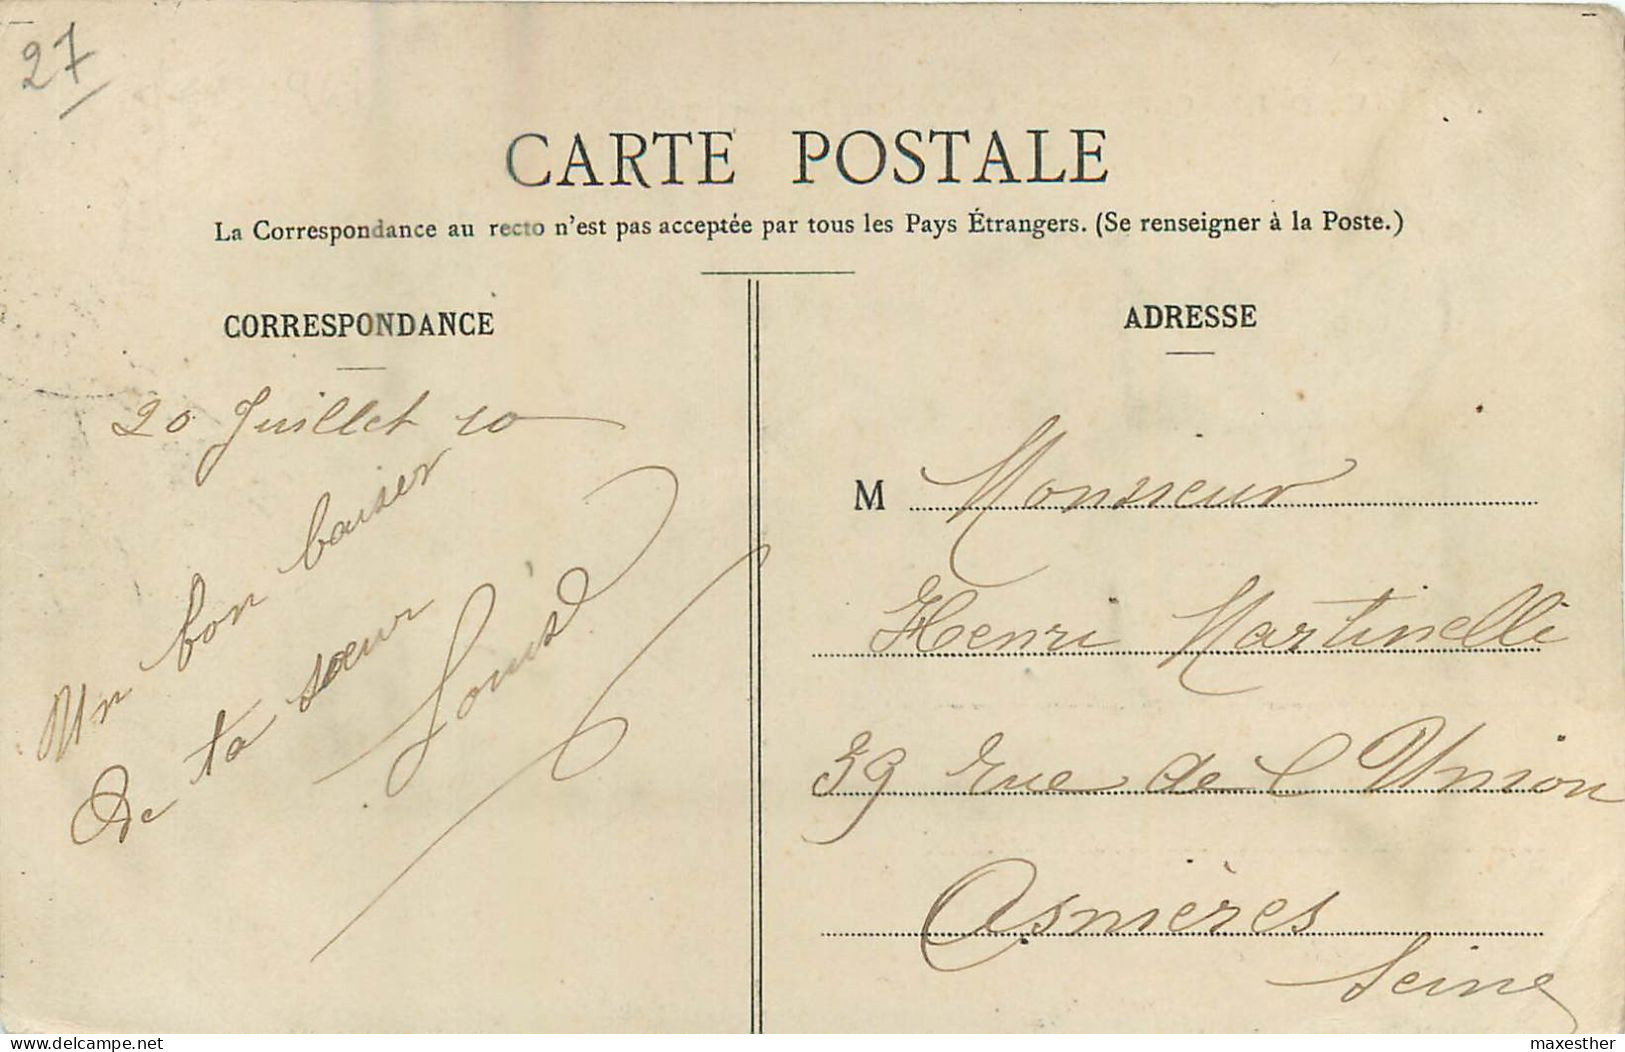 27
CARTE POSTALE
La Correspondance au recto n'est pas acceptée par tous les Pays Étrangers. (Se renseigner à la Poste.)
CORRESPONDANCE
20 Juillet 10
Un bon baiser
De ta sœur
Louise
ADRESSE
M Monsieur
Henri Martinelli
39 rue de l'Union
Asnières
Seine
www.delcampe.net
maxesther